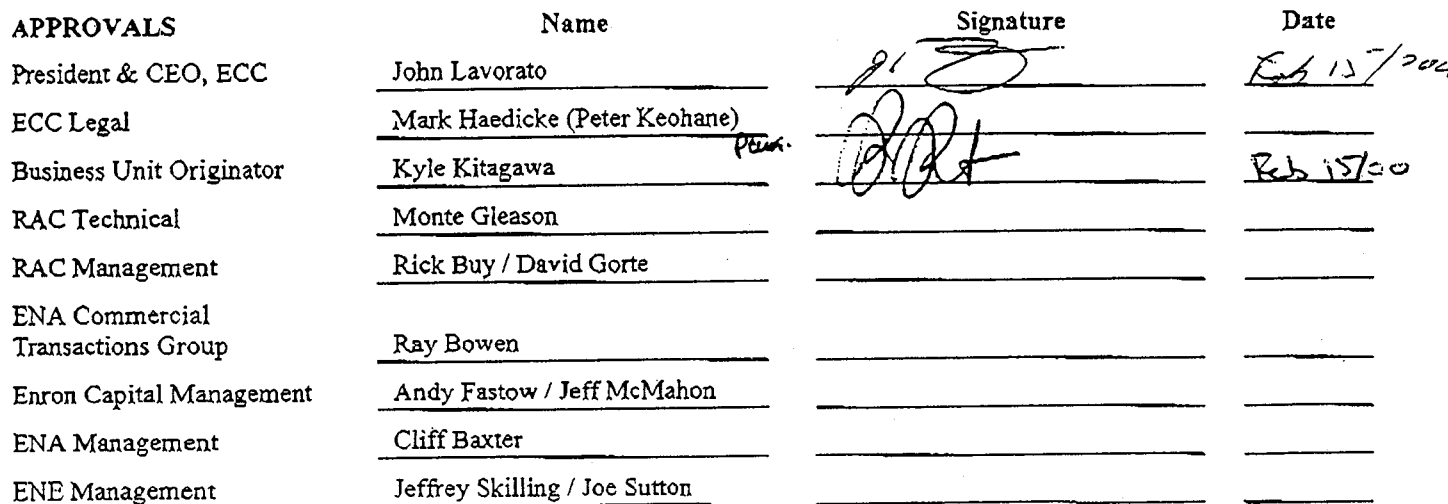 APPROVALS Name Signature Date
President & CEO, ECC John Lavorato Feb 15/200
ECC Legal Mark Haedicke (Peter Keohane)
Business Unit Originator Kyle Kitagawa Feb 15/00
RAC Technical Monte Gleason
RAC Management Rick Buy / David Gorte
ENA Commercial
Transactions Group Ray Bowen
Enron Capital Management Andy Fastow / Jeff McMahon
ENA Management Cliff Baxter
ENE Management Jeffrey Skilling / Joe Sutton